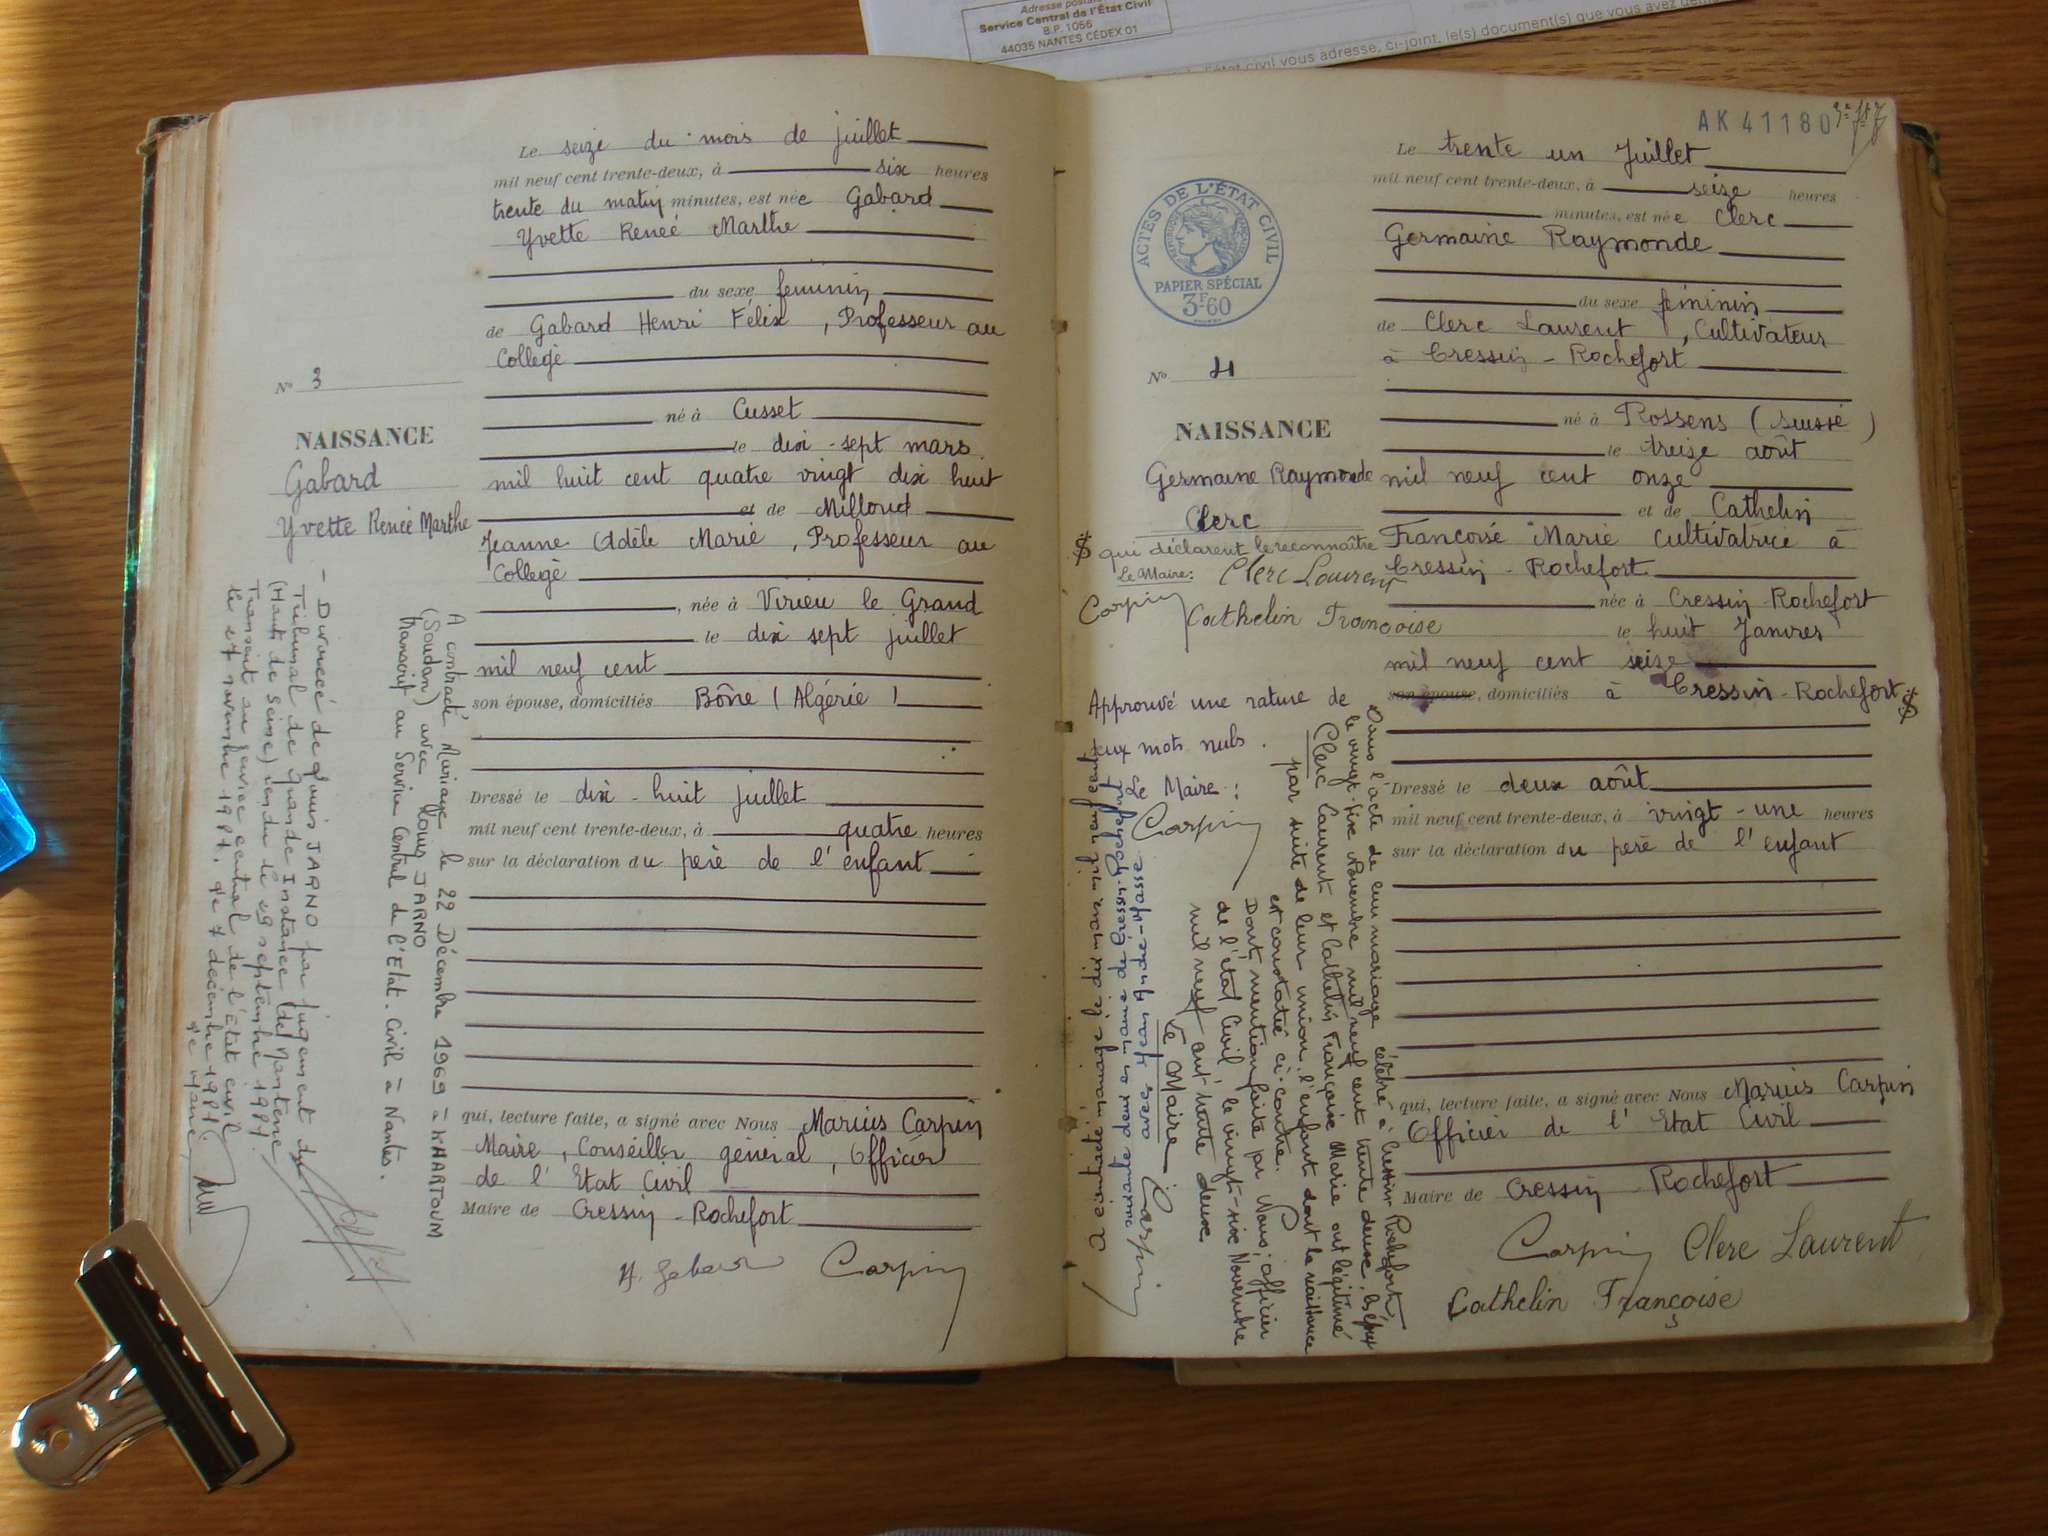 Adresse postale
Service Central de l'État Civil
B.P. 1056
44035 NANTES CÉDEX 01
état civil vous adresse, ci-joint, le(s) document(s) que vous avez
Le seize du mois de juillet
mil neuf cent trente-deux, à six heures
trente du matin minutes, est née Gabard
Yvette Renée Marthe
du sexe feminin
de Gabard Henri Félix, Professeur au
Collegè
né à Cusset
le dix-sept mars
mil huit cent quatre vingt dix huit
et de Milloud
Jeanne Adèle Marie, Professeur au
Collegè
, née à Virieu le Grand
le dix sept juillet
mil neuf cent
son épouse, domiciliés Bône (Algérie)
Dressé le dix-huit juillet
mil neuf cent trente-deux, à quatre heures
sur la déclaration du père de l'enfant
qui, lecture faite, a signé avec Nous Marius Carpin
Maire, Conseiller général, Officier
de l'Etat Civil
Maire de Cressin-Rochefort
H. Gabard Carpin
N° 3
NAISSANCE
Gabard
Yvette Renée Marthe
A contracté Mariage le 22 Décembre 1969 = KHARTOUM
(Soudan) avec Louis JARNO
transcrit au Service Central de l'Etat. Civil = Nantes.
- Divorcé de Louis JARNO par jugement du
Tribunal de Grande Instance de Nanterre
(Hauts de Seine) rendu le 29 septembre 1981
Transcrit au service central de l'état civil
le 27 novembre 1981. Le 7 décembre 1981
AK 41180
ACTES DE L'ÉTAT CIVIL
PAPIER SPÉCIAL
3F60
N° 4
NAISSANCE
Germaine Raymonde
Clerc
$ qui déclarent le reconnaître
Le Maire: Clerc Laurent
Carpin Cathelin Françoise
Approuvé une rature de
deux mots nuls.
Le Maire:
Carpin
Le trente un Juillet
mil neuf cent trente-deux, à seize heures
minutes, est née Clerc
Germaine Raymonde
du sexe féminin
de Clerc Laurent, Cultivateur
à Cressin-Rochefort
né à Rossens (Suisse)
le treize août
mil neuf cent onze
et de Cathelin
Françoise Marie cultivatrice à
Cressin-Rochefort
née à Cressin-Rochefort
le huit Janvier
mil neuf cent seize
son épouse, domiciliés à Cressin-Rochefort $
Dressé le deux août
mil neuf cent trente-deux, à vingt-une heures
sur la déclaration du père de l'enfant
qui, lecture faite, a signé avec Nous Marius Carpin
Officier de l'Etat Civil
Maire de Cressin-Rochefort
Carpin Clerc Laurent
Cathelin Françoise
Dans l'acte de leur mariage célébré à Cressin Rochefort,
le vingt-six Novembre mil neuf cent trente deux, les époux
Clerc Laurent et Cathelin Françoise Marie ont légitimé
par suite de leur union, l'enfant dont la naissance
est constatée ci-contre.
Dont mention faite par Nous, officier
de l'état Civil, le vingt-six Novembre
mil neuf cent trente deux.
Le Maire
Carpin
a contracté mariage le dix mars mil neuf cent
cinquante deux en mairie de Cressin-Rochefort
avec Jean